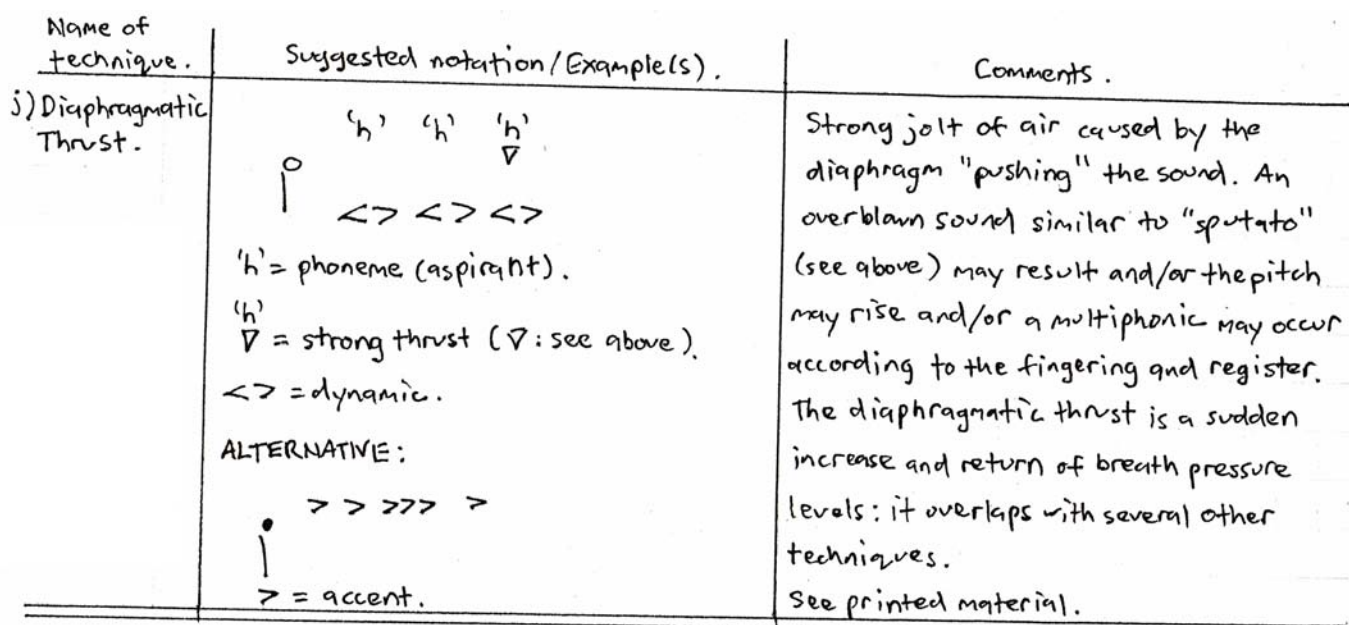 Name of
technique.
Suggested notation/Example(s).
Comments.
j) Diaphragmatic
Thrust.
'h' 'h' 'h'
∇
<> <> <>
'h' = phoneme (aspirant).
'h'
∇ = strong thrust (∇: see above).
<> = dynamic.
ALTERNATIVE:
> > >>> >
> = accent.
Strong jolt of air caused by the
diaphragm "pushing" the sound. An
overblown sound similar to "sputato"
(see above) may result and/or the pitch
may rise and/or a multiphonic may occur
according to the fingering and register.
The diaphragmatic thrust is a sudden
increase and return of breath pressure
levels: it overlaps with several other
techniques.
See printed material.